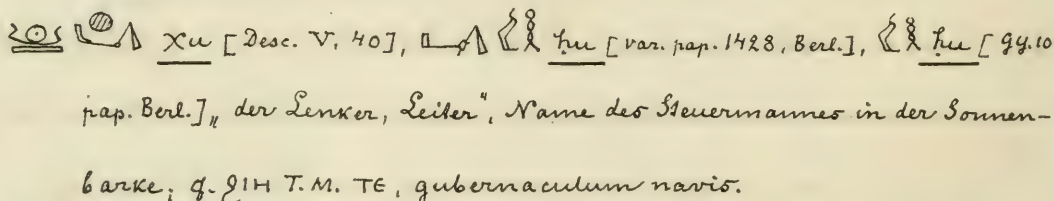 χu [Desc. V, 40], ḥu [var. pap. 1428, Berl.], ḥu [gy. 10
pap. Berl.] „der Lenker, Leiter“, Name des Steuermannes in der Sonnen-
barke; cf. ϩⲓⲏ T. M. ⲧⲉ, gubernaculum navis.